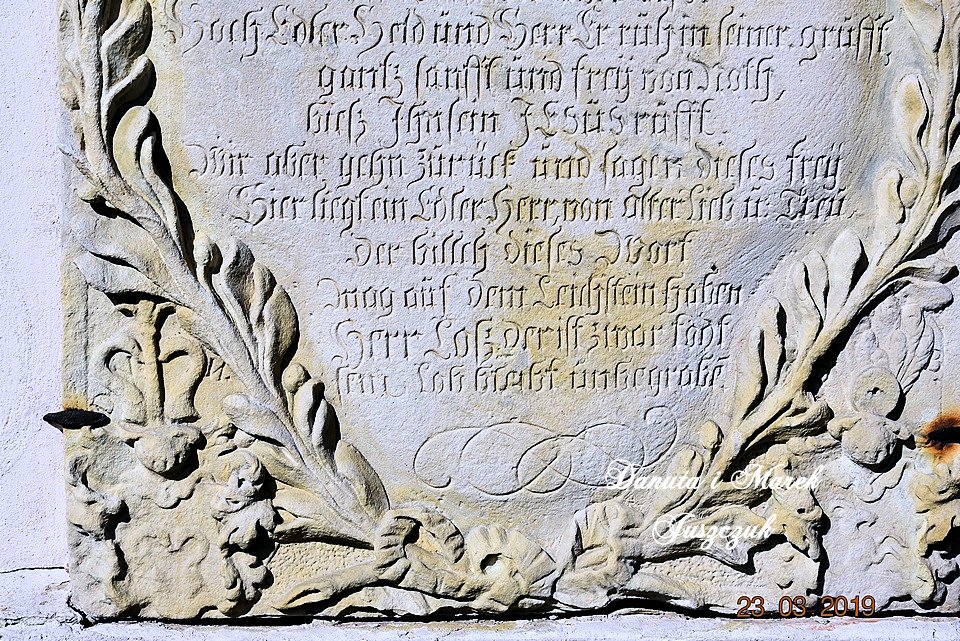 Hoch Edler Held und Herr Er ruh in seiner grufft,
gantz sanfft und frey von Noth,
biß Ihn sein JESUS rufft.
Wir aber gehn zurück und sagen dieses frey
Hier liegt ein Edler Herr, von alter lieb u: Treu.
Der hilfch dieses Wort
mag auf dem Leichstein haben
Herr Loß, der ist zwar todt
sein Lob bleibt unbegrabē.
Danuta i Marek
Juszczuk
23 03 2019